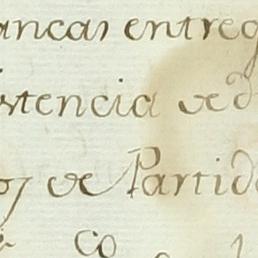 ancas entreg
istencia de d
os de Partido
co